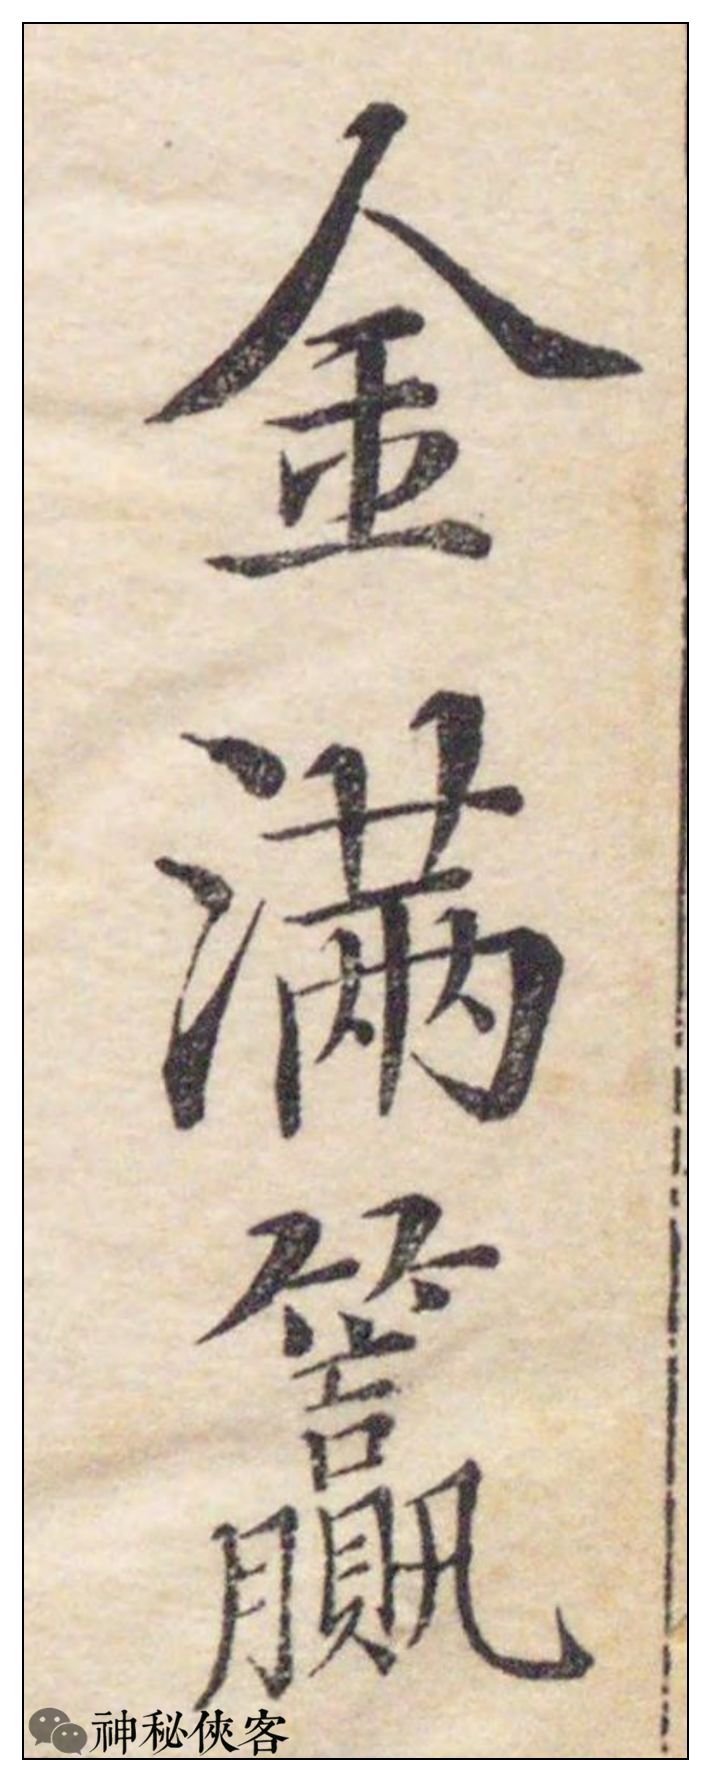 金滿籯
神秘俠客